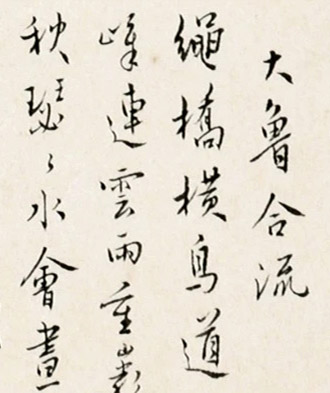 大魯合流
繩橋橫鳥道
峰連雲雨重
秋瑟〻水會